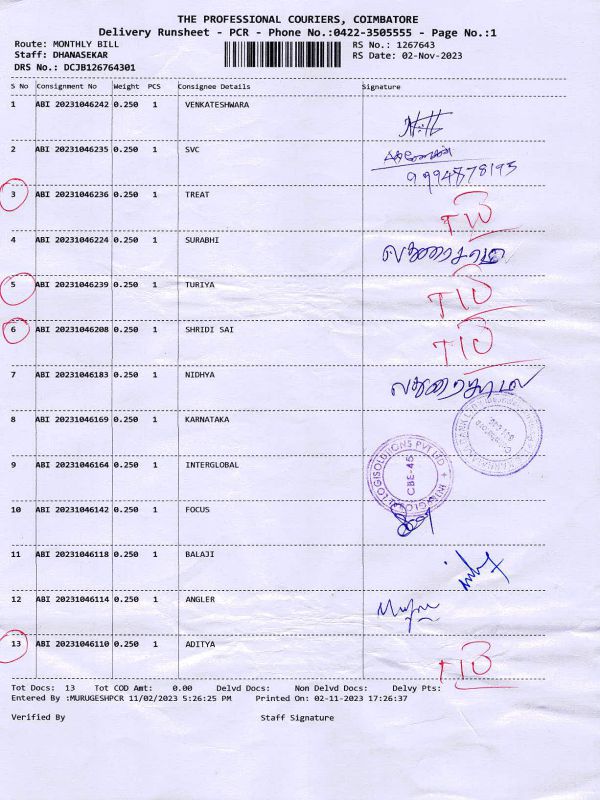 THE PROFESSIONAL COURIERS, COIMBATORE
Delivery Runsheet - PCR - Phone No.:0422-3505555 - Page No.:1
Route: MONTHLY BILL RS No.: 1267643
Staff: DHANASEKAR RS Date: 02-Nov-2023
DRS No.: DCJB126764301
S No Consignment No Weight PCS Consignee Details Signature
1 ABI 20231046242 0.250 1 VENKATESHWARA
2 ABI 20231046235 0.250 1 SVC
9994878195
3 ABI 20231046236 0.250 1 TREAT
4 ABI 20231046224 0.250 1 SURABHI
5 ABI 20231046239 0.250 1 TURIYA
6 ABI 20231046208 0.250 1 SHRIDI SAI
7 ABI 20231046183 0.250 1 NIDHYA
8 ABI 20231046169 0.250 1 KARNATAKA
9 ABI 20231046164 0.250 1 INTERGLOBAL
CBE-45
10 ABI 20231046142 0.250 1 FOCUS
11 ABI 20231046118 0.250 1 BALAJI
12 ABI 20231046114 0.250 1 ANGLER
13 ABI 20231046110 0.250 1 ADITYA
Tot Docs: 13 Tot COD Amt: 0.00 Delvd Docs: Non Delvd Docs: Delvy Pts:
Entered By :MURUGESHPCR 11/02/2023 5:26:25 PM Printed On: 02-11-2023 17:26:37
Verified By Staff Signature